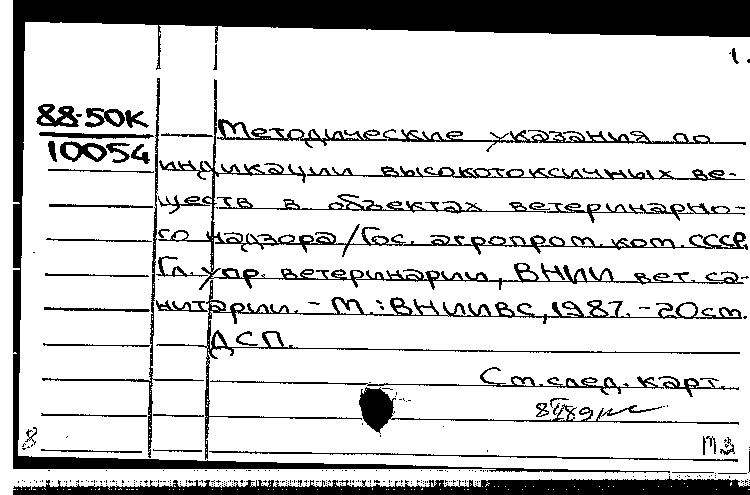 1.
88-50К
10054
Методические указания по
индикации высокотоксичных ве-
ществ в объектах ветеринарно-
го надзора/Гос. агропром. ком. СССР,
Гл. упр. ветеринарии, ВНИИ вет. са-
нитарии. - М.: ВНИИВС, 1987. - 20 ст.
ДСП.
См. след. карт.
8
МЗ